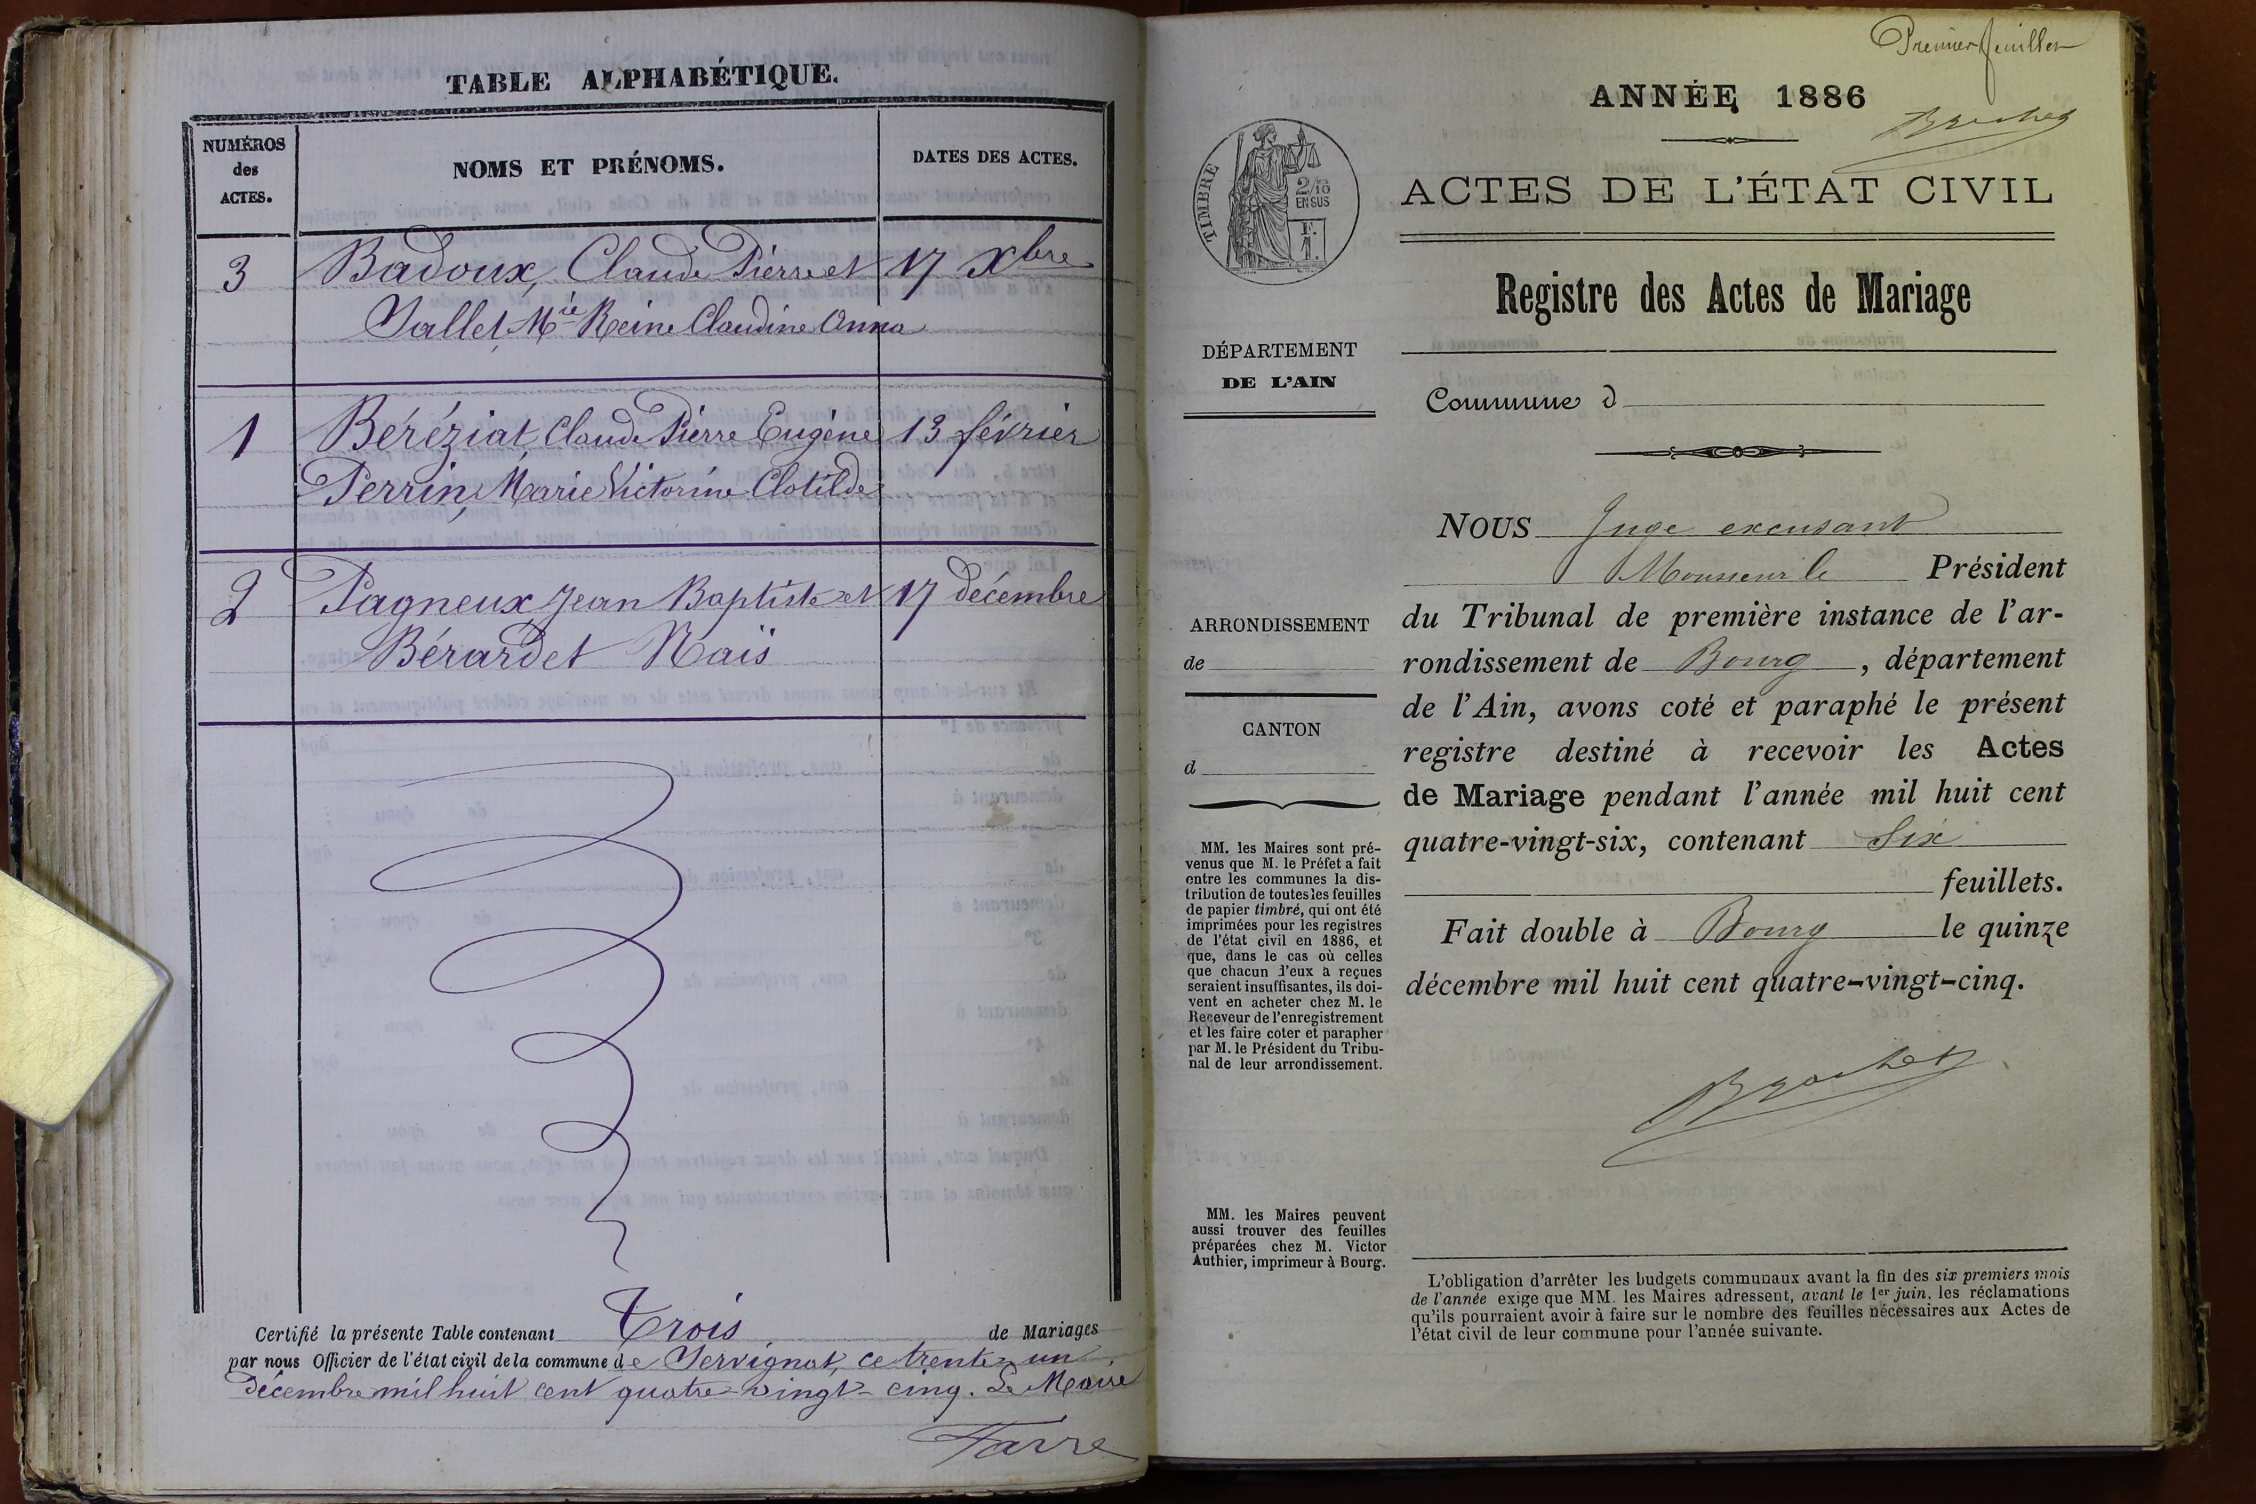 TABLE ALPHABÉTIQUE.
NUMÉROS
des
ACTES.
NOMS ET PRÉNOMS.
DATES DES ACTES.
3 Badoux, Claude Pierre et 17 Xbre
Sallet, Mie Reine Claudine Anna
1 Béréziat, Claude Pierre Eugène 13 février
Perrin, Marie Victorine Clotilde
2 Pagneux, Jean Baptiste et 17 décembre
Bérardet Naïs
Certifié la présente Table contenant Trois de Mariages
par nous Officier de l'état civil de la commune de Servignat, ce trente-un
Décembre mil huit cent quatre-vingt-cinq. Le Maire
Farre
Premier feuillet
ANNÉE 1886
Brochet
TIMBRE
2/10
EN SUS
F.
1.
ACTES DE L'ÉTAT CIVIL
Registre des Actes de Mariage
DÉPARTEMENT
DE L'AIN
Commune d
NOUS Juge excusant
Monsieur le Président
du Tribunal de première instance de l'ar-
rondissement de Bourg, département
de l'Ain, avons coté et paraphé le présent
registre destiné à recevoir les Actes
de Mariage pendant l'année mil huit cent
quatre-vingt-six, contenant six
feuillets.
Fait double à Bourg le quinze
décembre mil huit cent quatre-vingt-cinq.
Brochet
ARRONDISSEMENT
de
CANTON
d
MM. les Maires sont pré-
venus que M. le Préfet a fait
entre les communes la dis-
tribution de toutes les feuilles
de papier timbré, qui ont été
imprimées pour les registres
de l'état civil en 1886, et
que, dans le cas où celles
que chacun d'eux à reçues
seraient insuffisantes, ils doi-
vent en acheter chez M. le
Receveur de l'enregistrement
et les faire coter et parapher
par M. le Président du Tribu-
nal de leur arrondissement.
MM. les Maires peuvent
aussi trouver des feuilles
préparées chez M. Victor
Authier, imprimeur à Bourg.
L'obligation d'arrêter les budgets communaux avant la fin des six premiers mois
de l'année exige que MM. les Maires adressent, avant le 1er juin, les réclamations
qu'ils pourraient avoir à faire sur le nombre des feuilles nécessaires aux Actes de
l'état civil de leur commune pour l'année suivante.